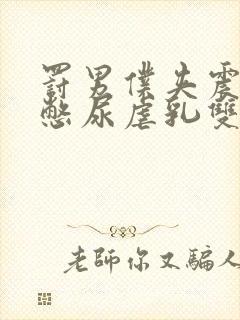 罰男僕失震
憋尿虐乳雙
老師你又騙人